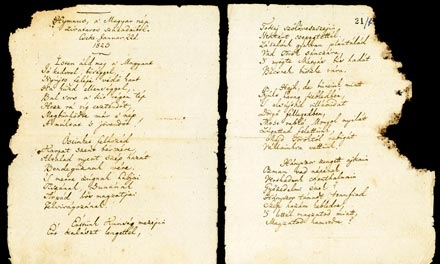 Hymnus, a' Magyar nép
zivataros századaiból.
Cseke, Januar. 22d.
1823.
Isten áldd meg a' Magyart
Jó kedvvel, bőséggel,
Nyújts feléje védő kart,
Ha küzd ellenséggel;
Bal sors a' kit régen tép,
Hozz reá víg esztendőt,
Megbűnhődte már e' nép
A' multat 's jövendőt!
Őseinket felhozád
Kárpát szent bérczére,
Általad nyert szép hazát
Bendegúznak vére.
'S merre zúgnak habjai
Tiszának, Dunának,
Árpád hős magzatjai
Felvirágozának.
Értünk Kunság mezején
Ért kalászt lengettél,
Tokaj szőlővesszején
Nektárt csepegtettél.
Zászlónk gyakran plántálád
Vad Török sánczára,
'S nyögte Mátyás bús hadát
Bécsnek büszke vára.
Hajh, de bűneink miatt
Gyúlt harag kebledben,
'S elsújtád villámidat
Dörgő fellegedben,
Most rabló Mongol nyilát
Zúgattad felettünk,
Majd Töröktől rabigát
Vállainkra vettünk.
Hányszor zengett ajkain
Ozman vad népének
Vert hadunk csonthalmain
Győzedelmi ének!
Hányszor támadt tenfiad
Szép hazám kebledre,
'S lettél magzatod miatt
Magzatod hamvvedre?